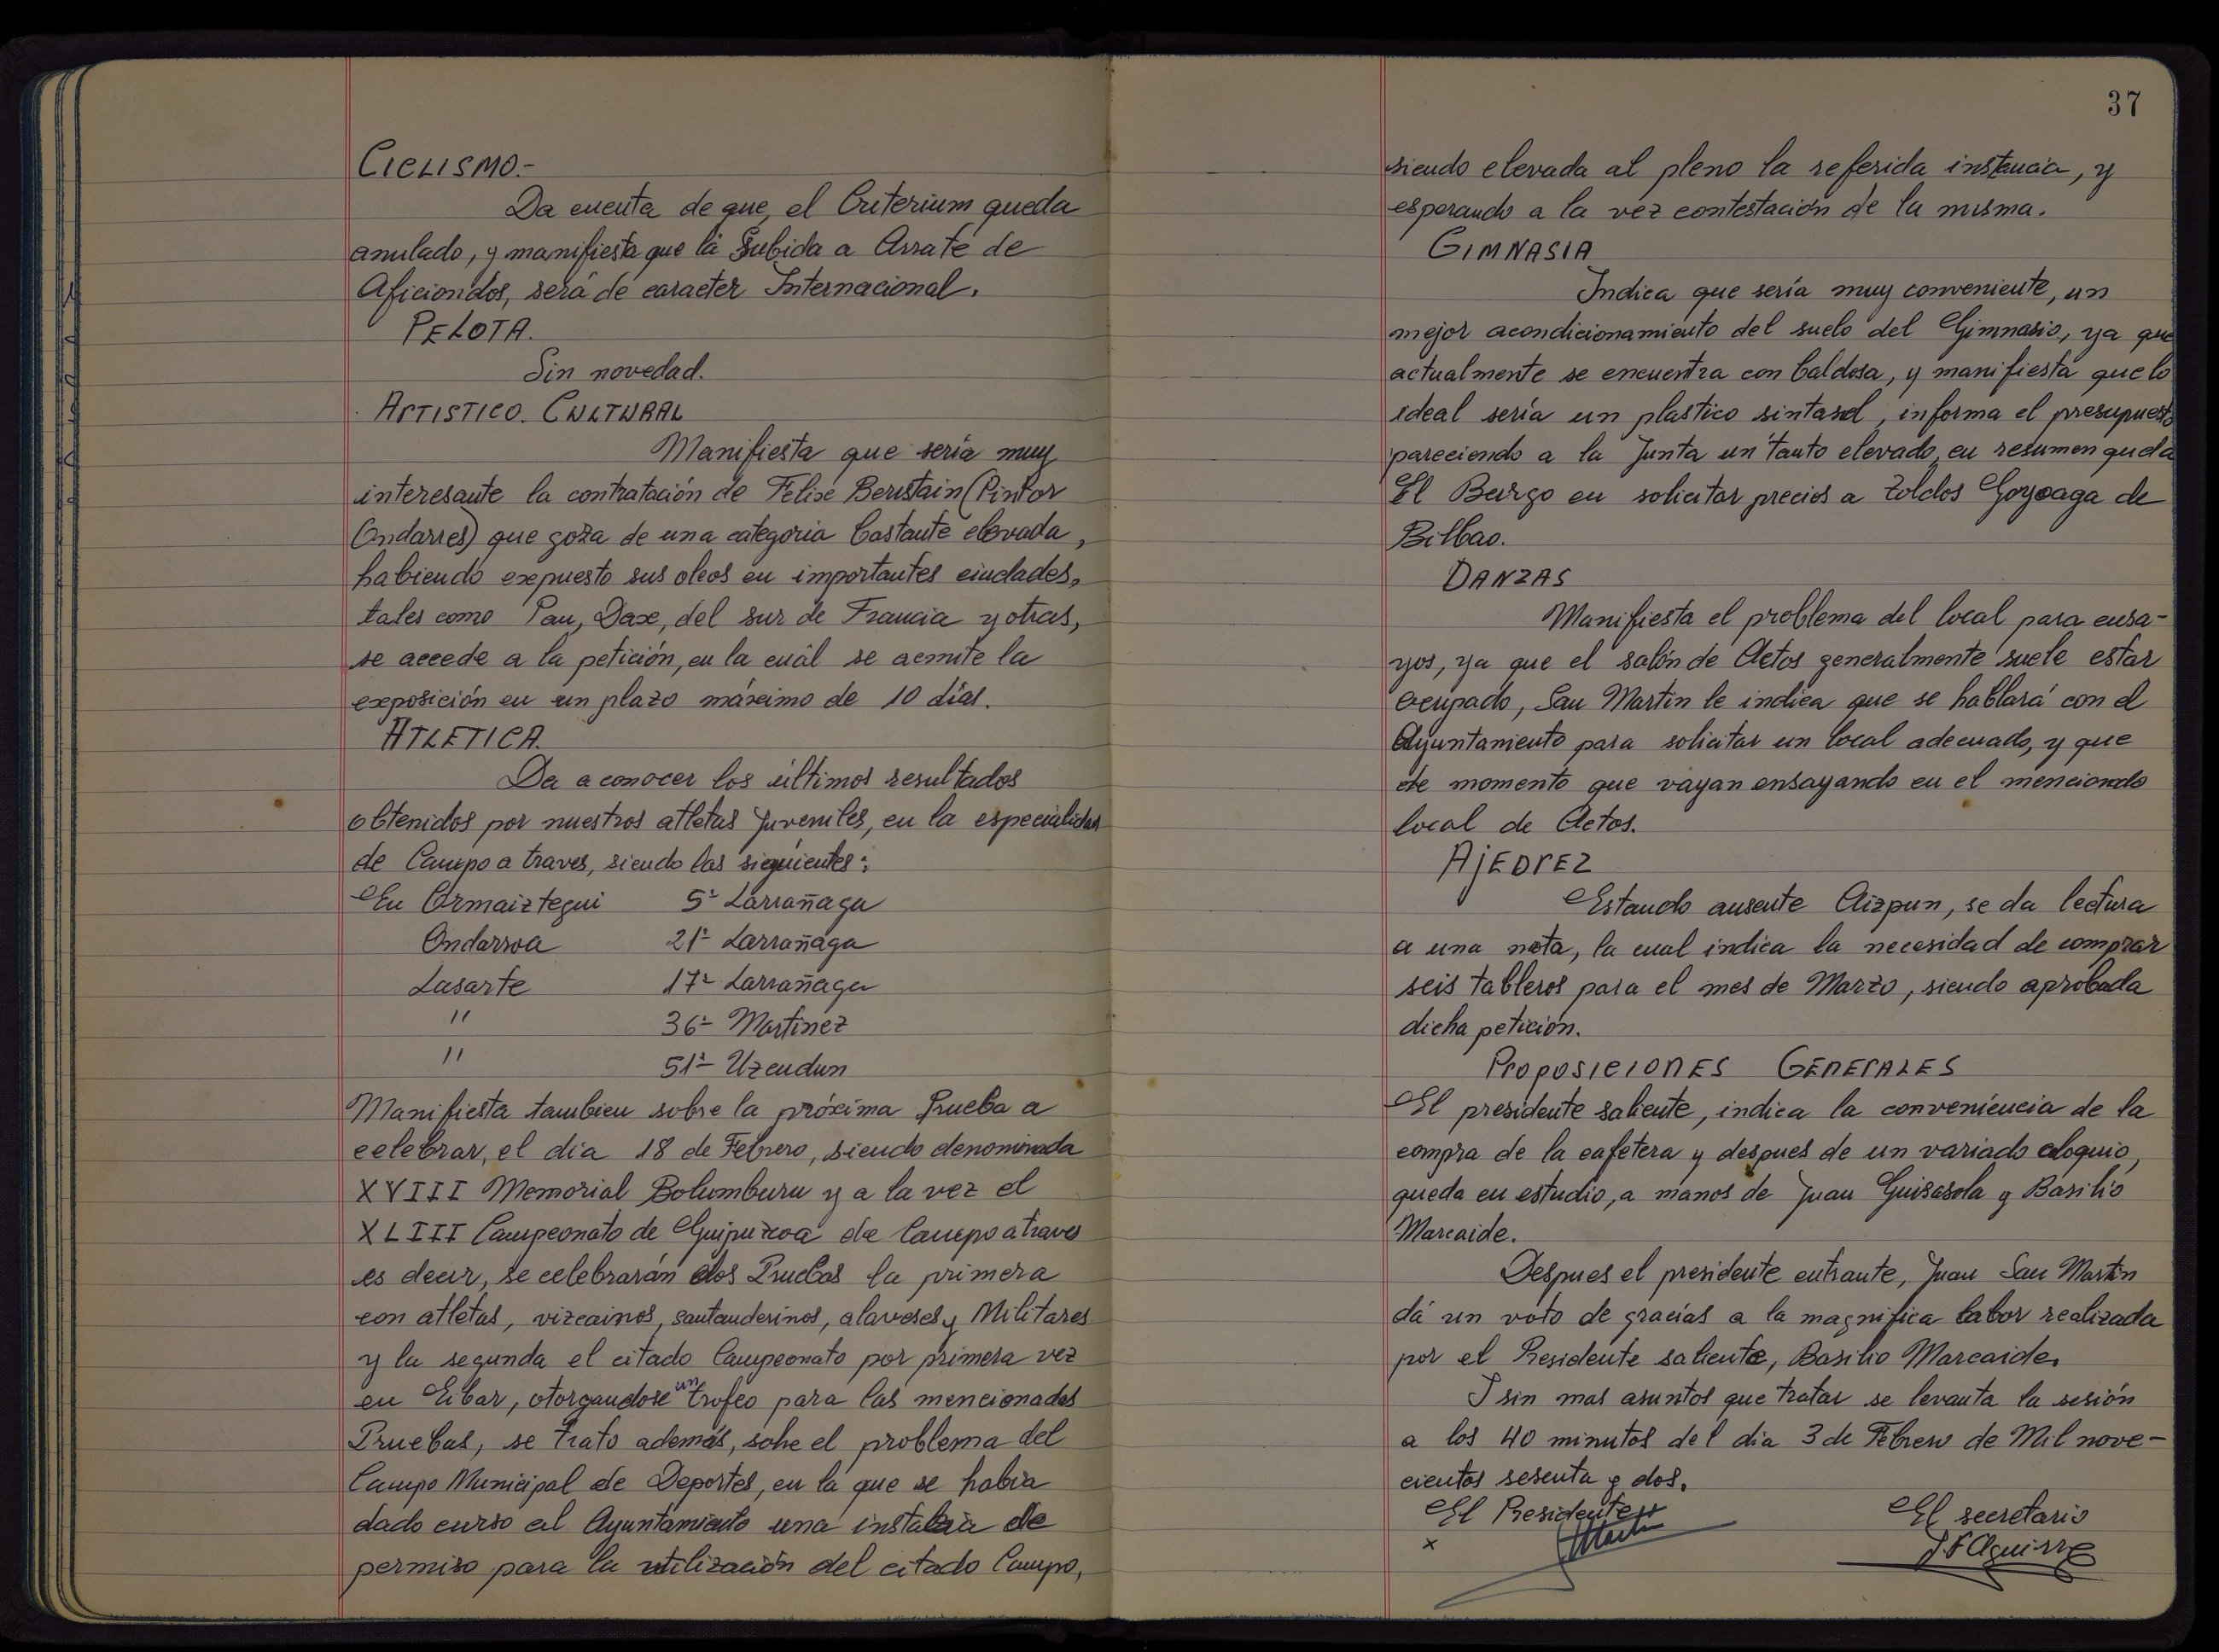 CICLISMO.-
Da cuenta de que, el Criterium queda
anulado, y manifiesta que la Subida a Arrate de
Aficiondos, será de caracter Internacional.
PELOTA.
Sin novedad.
ARTISTICO. CULTURAL
Manifiesta que sería muy
interesante la contratación de Felise Beristain (Pintor
Ondarres) que goza de una categoria bastante elevada,
habiendo expuesto sus oleos en importantes ciudades,
tales como Pau, Dax, del sur de Francia y otras,
se accede a la petición, en la cuál se
exposición en un plazo máximo de 10 días.
ATLETICA.
Da a conocer los últimos resultados
obtenidos por nuestros atletas juveniles, en la especialidad
de Campo a traves, siendo las siguientes:
En Ormaiztegui 5º Larrañaga
Ondarroa 21º Larrañaga
Lasarte 17º Larrañaga
" 36º Martinez
" 51º Uzcudun
Manifiesta tambien sobre la próxima Prueba a
celebrar, el día 18 de Febrero, siendo denominada
XVIII Memorial Bolumburu y a la vez el
XLIII Campeonato de Guipuzcoa de Campo a traves
es decir, se celebrarán dos Pruebas la primera
con atletas, vizcainos, santanderinos, alaveses y Militares
y la segunda el citado Campeonato por primera vez
en Eibar, otorgandose un trofeo para las mencionadas
Pruebas, se trato además, sobe el problema del
Campo Municipal de Deportes, en la que se habia
dado curso al Ayuntamiento una de
permiso para la utilización del citado Campo,
37
siendo elevada al pleno la referida instancia, y
esperando a la vez contestación de la misma.
GIMNASIA
Indica que sería muy conveniente, un
mejor acondicionamiento del suelo del Gimnasio, ya que
actualmente se encuentra con baldosa, y manifiesta que lo
ideal sería un plastico sintasol, informa el presupuesto
pareciendo a la Junta un tanto elevado, en resumen queda
El Burgo en solicitar precios a toldos Goyoaga de
Bilbao.
DANZAS
Manifiesta el problema del local para ensa-
yos, ya que el salón de Actos generalmente suele estar
ocupado, San Martin le indica que se hablará con el
Ayuntamiento para solicitar un local adecuado, y que
de momento que vayan ensayando en el menciondo
local de Actos.
AJEDREZ
Estando ausente Aizpun, se da lectura
a una nota, la cual indica la necesidad de comprar
seis tableros para el mes de Marzo, siendo aprobada
dicha petición.
PROPOSICIONES GENERALES
El presidente saliente, indica la conveniencia de la
compra de la cafetera y despues de un variado cloquio,
queda en estudio, a manos de Juan Guisasola y Basilio
Marcaide.
Despues el presidente entrante, Juan San Martin
dá un voto de gracias a la magnifica labor realizada
por el Presidente saliente, Basilio Marcaide.
I sin mas asuntos que tratar se levanta la sesión
a los 40 minutos del dia 3 de Febrero de Mil nove-
cientos sesenta y dos.
El Presidente
El secretario
x
J. F. Aguirre